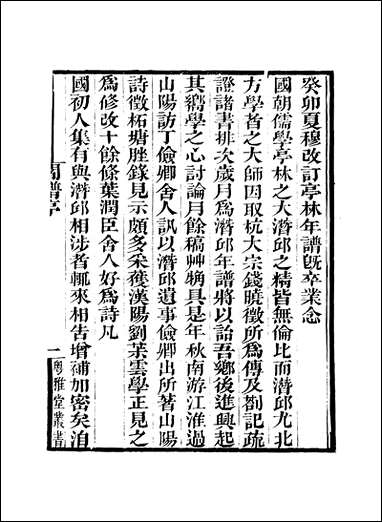 癸卯夏穆改訂亭林年譜既卒業念
國朝儒學亭林之大潛邱之精皆無倫比而潛邱尤北
方學者之大師因取杭大宗錢曉徵所為傳及劄記疏
證諸書排次歲月為潛邱年譜將以詒吾鄉後進興起
其嚮學之心討論月餘稿艸觕具是年秋南游江淮過
山陽訪丁儉卿舍人訊以潛邱遺事儉卿出所著山陽
詩徵柘塘脞錄見示頗多采獲漢陽劉茮雲學正見之
為修改十餘條葉潤臣舍人好為詩凡
國初人集有與潛邱相涉者輒來相告增補加密矣洎
閻譜序
一
粵雅堂叢書